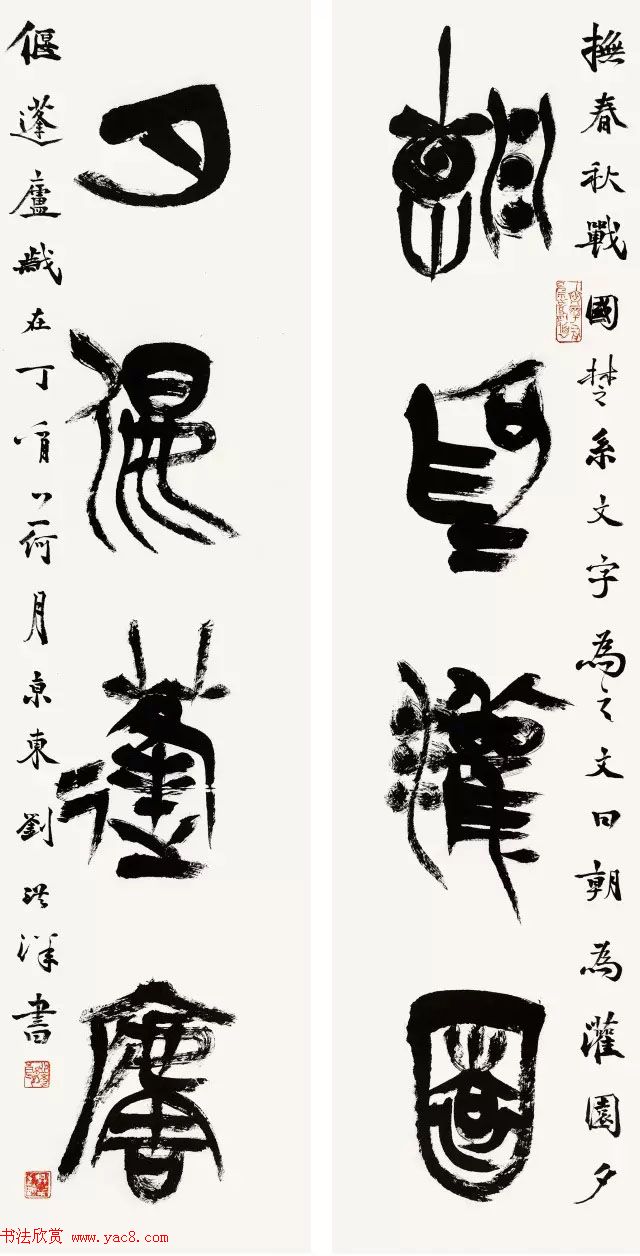 朝為灌園
夕偃蓬廬
撫春秋戰國楚系文字為之文曰朝為灌園夕
偃蓬廬歲在丁酉荷月京東劉洪洋書
书法欣赏 www.yac8.com